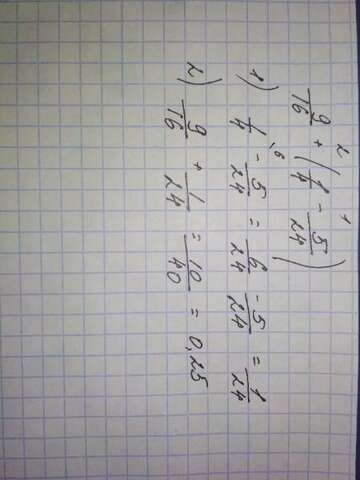 9/16 + (1/4 - 5/24)
1) 1/4 - 5/24 = 6/24 - 5/24 = 1/24
2) 9/16 + 1/24 = 10/40 = 0,25